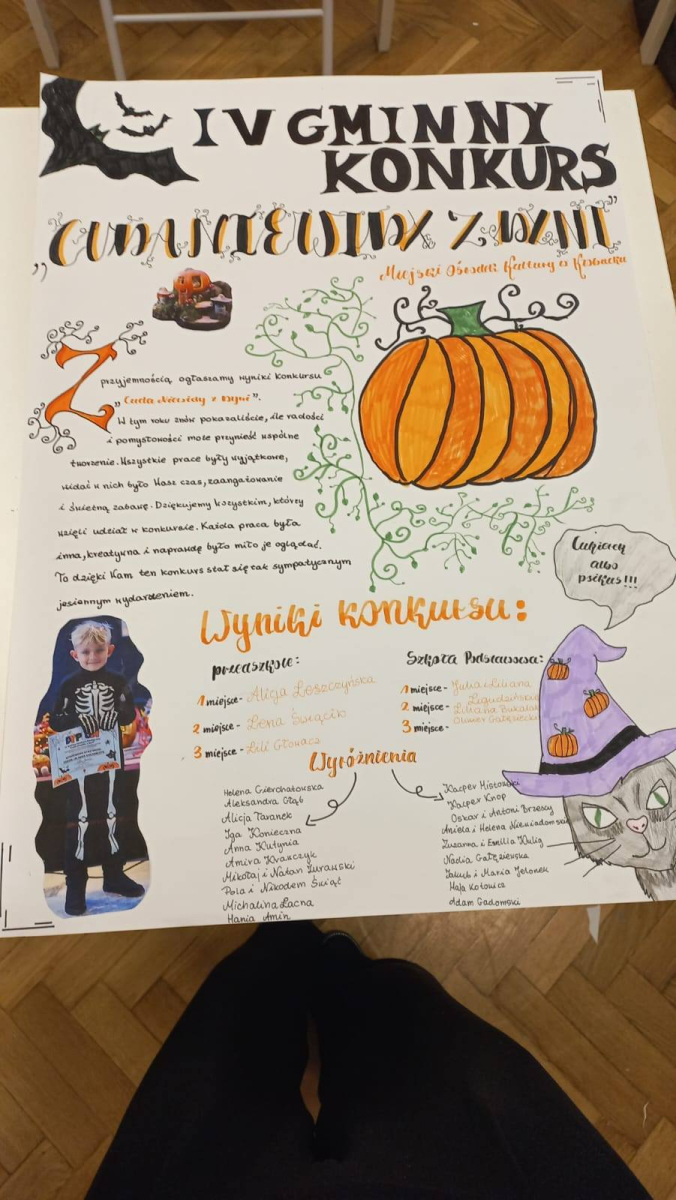 IV GMINNY
KONKURS
„CUDA NIEWIDY Z DYNI”
Miejski Ośrodek Kultury w
Z przyjemnością ogłaszamy wyniki konkursu
„Cuda Niewidy z Dyni”.
W tym roku znów pokazaliście, ile radości
i pomysłowości może przynieść wspólne
tworzenie. Wszystkie prace były wyjątkowe,
widać w nich było Wasz czas, zaangażowanie
i świetną zabawę. Dziękujemy wszystkim, którzy
wzięli udział w konkursie. Każda praca była
inna, kreatywna i naprawdę było miło je oglądać.
To dzięki Wam ten konkurs stał się tak sympatycznym
jesiennym wydarzeniem.
Cukierek
albo
psikus!!!
Wyniki konkursu:
przedszkole:
1 miejsce - Alicja Leszczyńska
2 miejsce - Lena Święcik
3 miejsce - Lili Głowacz
Szkoła Podstawowa:
1 miejsce - Julia i Liliana
2 miejsce - Liliana
3 miejsce - Oliwier
Wyróżnienia
Helena Cierchatowska
Aleksandra Głąb
Alicja Taranek
Iga Konieczna
Anna Kutynia
Amira Krawczyk
Mikołaj i Natan Żurawski
Pola i Nikodem Świąć
Michalina Łacna
Hania Amin
Kacper
Kacper Knop
Oskar i Antoni Brzescy
Aniela i Helena
Zuzanna i Emilia Kulig
Nadia Gałęziewska
Jakub i Maria Jelonek
Maja Kotowicz
Adam Gadomski